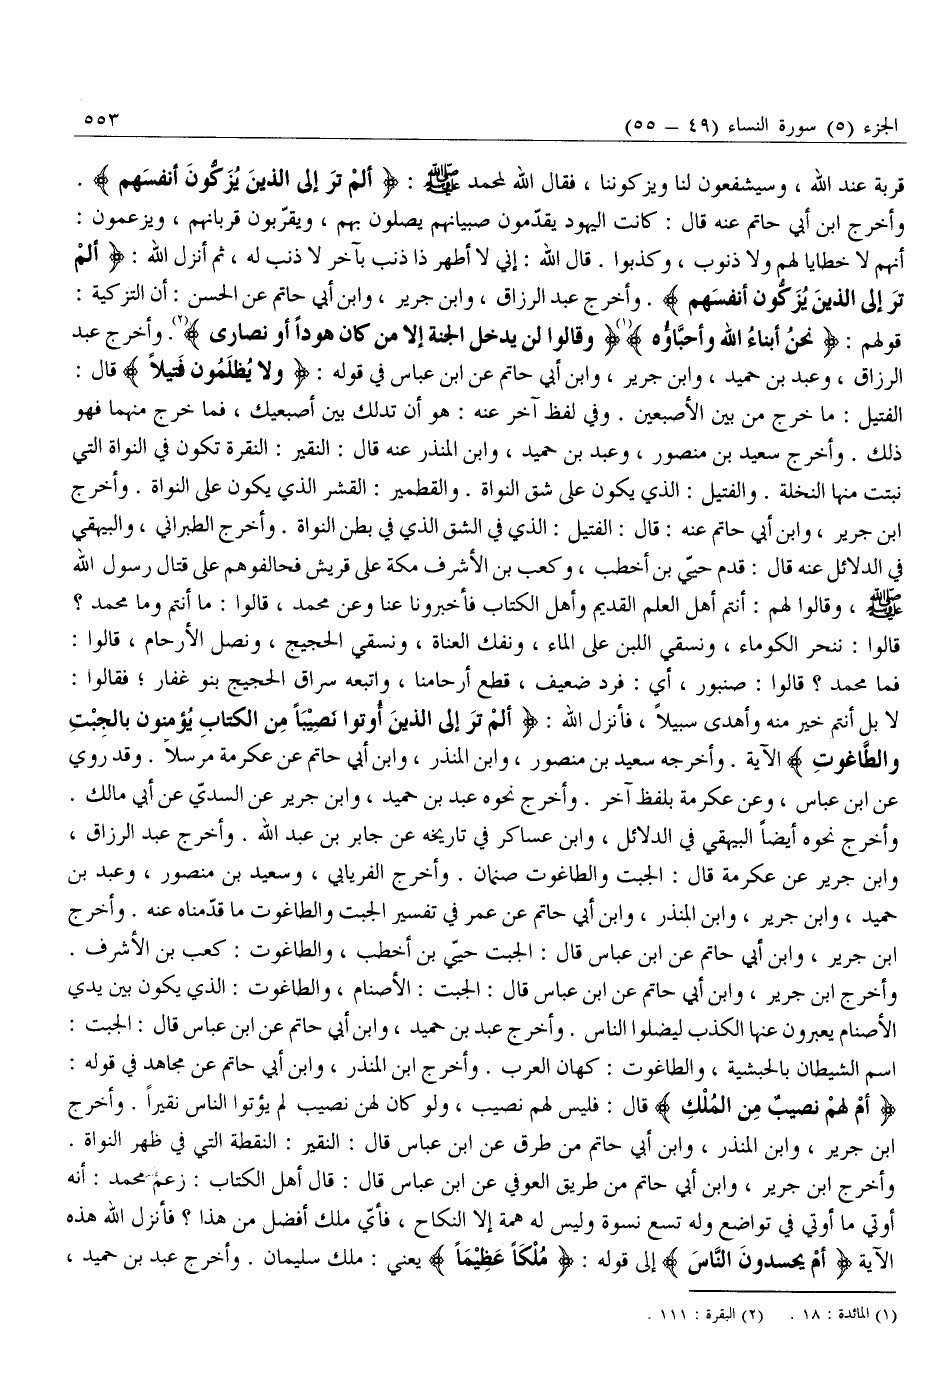 الجزء (٥) سورة النساء (٤٩ – ٥٥) ٥٥٣
قربة عند الله ، وسيشفعون لنا ويزكوننا ، فقال الله لمحمد ﷺ : ﴿ ألمْ ترَ إلى الذينَ يُزَكُّونَ أنفسَهم ﴾ .
وأخرج ابن أبي حاتم عنه قال : كانت اليهود يقدّمون صبيانهم يصلون بهم ، ويقرّبون قربانهم ، ويزعمون :
أنهم لا خطايا لهم ولا ذنوب ، وكذبوا . قال الله : إني لا أطهر ذا ذنب بآخر لا ذنب له ، ثم أنزل الله : ﴿ ألمْ
ترَ إلى الذينَ يُزَكُّون أنفسَهم ﴾ . وأخرج عبد الرزاق ، وابن جرير ، وابن أبي حاتم عن الحسن : أن التزكية :
قولهم : ﴿ نحنُ أبناءُ الله وأحبَّاؤُه ﴾(١)﴿ وقالوا لن يدخل الجنة إلا من كان هوداً أو نصارى ﴾(٢). وأخرج عبد
الرزاق ، وعبد بن حميد ، وابن جرير ، وابن أبي حاتم عن ابن عباس في قوله : ﴿ ولا يُظلَمُون فَتيلاً ﴾ قال :
الفتيل : ما خرج من بين الأصبعين . وفي لفظ آخر عنه : هو أن تدلك بين أصبعيك ، فما خرج منهما فهو
ذلك . وأخرج سعيد بن منصور ، وعبد بن حميد ، وابن المنذر عنه قال : النقير : النقرة تكون في النواة التي
نبتت منها النخلة . والفتيل : الذي يكون على شق النواة . والقطمير : القشر الذي يكون على النواة . وأخرج
ابن جرير ، وابن أبي حاتم عنه : قال : الفتيل : الذي في الشق الذي في بطن النواة . وأخرج الطبراني ، والبيهقي
في الدلائل عنه قال : قدم حيّي بن أخطب ، وكعب بن الأشرف مكة على قريش فحالفوهم على قتال رسول الله
ﷺ ، وقالوا لهم : أنتم أهل العلم القديم وأهل الكتاب فأخبرونا عنا وعن محمد ، قالوا : ما أنتم وما محمد ؟
قالوا : ننحر الكوماء ، ونسقي اللبن على الماء ، ونفك العناة ، ونسقي الحجيج ، ونصل الأرحام ، قالوا :
فما محمد ؟ قالوا : صنبور ، أي : فرد ضعيف ، قطع أرحامنا ، واتبعه سراق الحجيج بنو غفار ؛ فقالوا :
لا بل أنتم خير منه وأهدى سبيلاً ، فأنزل الله : ﴿ ألمْ ترَ إلى الذينَ أُوتوا نَصِيْبَاً مِن الكتابِ يُؤمنون بالجِبْتِ
والطَّاغوتِ ﴾ الآية . وأخرجه سعيد بن منصور ، وابن المنذر ، وابن أبي حاتم عن عكرمة مرسلاً . وقد روي
عن ابن عباس ، وعن عكرمة بلفظ آخر . وأخرج نحوه عبد بن حميد ، وابن جرير عن السديّ عن أبي مالك .
وأخرج نحوه أيضاً البيهقي في الدلائل ، وابن عساكر في تاريخه عن جابر بن عبد الله . وأخرج عبد الرزاق ،
وابن جرير عن عكرمة قال : الجبت والطاغوت صنمان . وأخرج الفريابي ، وسعيد بن منصور ، وعبد بن
حميد ، وابن جرير ، وابن المنذر ، وابن أبي حاتم عن عمر في تفسير الجبت والطاغوت ما قدّمناه عنه . وأخرج
ابن جرير ، وابن أبي حاتم عن ابن عباس قال : الجبت حييّ بن أخطب ، والطاغوت : كعب بن الأشرف .
وأخرج ابن جرير ، وابن أبي حاتم عن ابن عباس قال : الجبت : الأصنام ، والطاغوت : الذي يكون بين يدي
الأصنام يعبرون عنها الكذب ليضلوا الناس . وأخرج عبد بن حميد ، وابن أبي حاتم عن ابن عباس قال : الجبت :
اسم الشيطان بالحبشية ، والطاغوت : كهان العرب . وأخرج ابن المنذر ، وابن أبي حاتم عن مجاهد في قوله :
﴿ أمْ لهمْ نصيبٌ مِن المُلْكِ ﴾ قال : فليس لهم نصيب ، ولو كان لهن نصيب لم يؤتوا الناس نقيراً . وأخرج
ابن جرير ، وابن المنذر ، وابن أبي حاتم من طرق عن ابن عباس قال : النقير : النقطة التي في ظهر النواة .
وأخرج ابن جرير ، وابن أبي حاتم من طريق العوفي عن ابن عباس قال : قال أهل الكتاب : زعم محمد : أنه
أوتي ما أوتي في تواضع وله تسع نسوة وليس له همة إلا النكاح ، فأيّ ملك أفضل من هذا ؟ فأنزل الله هذه
الآية ﴿ أمْ يحسدونَ النَّاسَ ﴾ إلى قوله : ﴿ مُلْكَاً عَظِيْمَاً ﴾ يعني : ملك سليمان . وأخرج عبد بن حميد ،
(١) المائدة : ١٨ . (٢) البقرة : ١١١ .